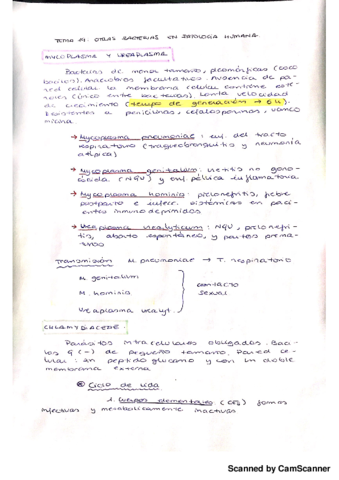 TEMA 19: OTRAS BACTERIAS EN PATOLOGÍA HUMANA.
MYCOPLASMA Y UREAPLASMA
Bacterias de menor tamaño, pleomórficas (coco
bacilos). Anaerobios facultativos. Ausencia de pa-
red celular. La membrana celular contiene este-
roles (único entre bacterias). Lenta velocidad
de crecimiento (tiempo de generación → 6h).
Resistentes a penicilinas, cefalosporinas, vanco
micina
→ Mycoplasma pneumoniae: inf. del tracto
respiratorio (traqueobronquitis y neumonía
atípica)
→ Mycoplasma genitalium: uretitis no gono-
cócica (NGU) y enf. pélvica inflamatoria
→ Mycoplasma hominis: pielonefritis, fiebre
postparto e infecc. sistémicas en paci-
entes inmunodeprimidos
→ Ureaplasma urealyticum: NGU, pielonefri-
tis, aborto espontáneo, y partos prema-
turos
Transmisión M. pneumoniae → T. respiratorio
M. genitalium
M. hominis
contacto
sexual
Ureaplasma urealyt.
CHLAMYDIACEAE
Parásitos intracelulares obligados. Baci-
los G(-) de pequeño tamaño. Pared ce-
lular: sin peptidoglucano y con una doble
membrana externa
Ciclo de vida
1. Cuerpos elementales (CE): formas
infectivas y metabólicamente inactivas
Scanned by CamScanner